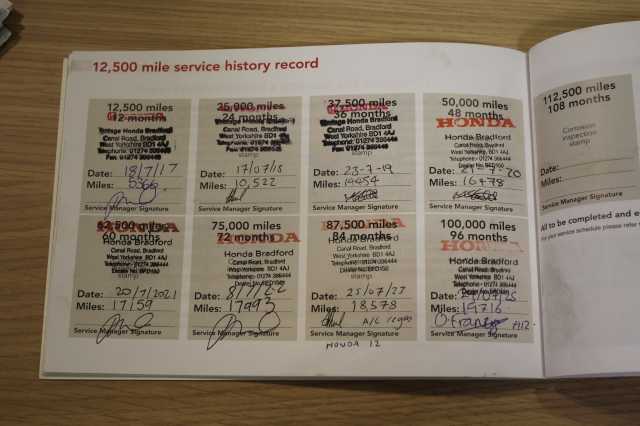 12,500 mile service history record
12,500 miles
12 months
HONDA
Vantage Honda Bradford
Canal Road, Bradford
West Yorkshire BD1 4AJ
Telephone: 01274
Fax: 01274
stamp
Date: 18/7/17
Miles:
Service Manager Signature
25,000 miles
24 months
Vantage Honda Bradford
Canal Road, Bradford
West Yorkshire BD1 4AJ
Telephone: 01274
Fax: 01274
stamp
Date: 17/07/18
Miles: 10,522
Service Manager Signature
37,500 miles
36 months
HONDA
Vantage Honda Bradford
Canal Road, Bradford
West Yorkshire BD1 4AJ
Telephone: 01274
Fax: 01274
stamp
Date: 23-7-19
Miles: 14454
Service Manager Signature
50,000 miles
48 months
HONDA
Honda Bradford
Canal Road, Bradford
West Yorkshire, BD1 4AJ
Telephone: 01274 386444
Dealer No. BFD160
Date: 21-7-20
Miles: 16478
Service Manager Signature
62,500 miles
60 months
Honda Bradford
Canal Road, Bradford
West Yorkshire BD1 4AJ
Telephone: 01274 386444
Dealer No. BFD160
stamp
Date: 20/7/2021
Miles: 17159
Service Manager Signature
75,000 miles
72 months
HONDA
Honda Bradford
Canal Road, Bradford
West Yorkshire BD1 4AJ
Telephone: 01274 386444
Dealer No. BFD160
Date: 8/7/22
Miles: 17993
Service Manager Signature
87,500 miles
84 months
HONDA
Honda Bradford
Canal Road, Bradford
West Yorkshire BD1 4AJ
Telephone: 01274 386444
Dealer No. BFD160
stamp
Date: 25/07/23
Miles: 18,578
A/C regas
Service Manager Signature
HONDA 12
100,000 miles
96 months
HONDA
Honda Bradford
Canal Road, Bradford
West Yorkshire, BD1 4AJ
Telephone: 01274 386444
Dealer No. BFD160
Date: /07/25
Miles: 19716
H12.
Service Manager Signature
112,500 miles
108 months
Corrosion
inspection
stamp
Date:
Miles:
Service Manager Signature
All to be completed and e
For your service schedule please refer